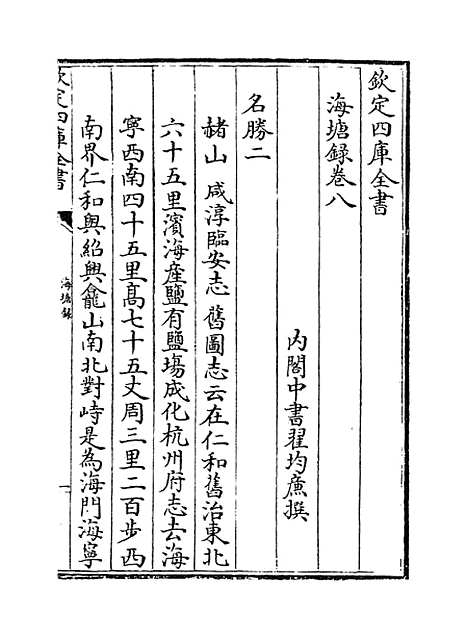 欽定四庫全書
海塘録巻八
內閣中書翟均廉撰
名勝二
赭山　咸淳臨安志舊圖志云在仁和舊治東北
六十五里濱海産鹽有鹽塲成化杭州府志去海
寧西南四十五里髙七十五丈周三里二百步西
南界仁和與紹興龕山南北對峙是為海門海寧
欽定四庫全書
海塘録
一